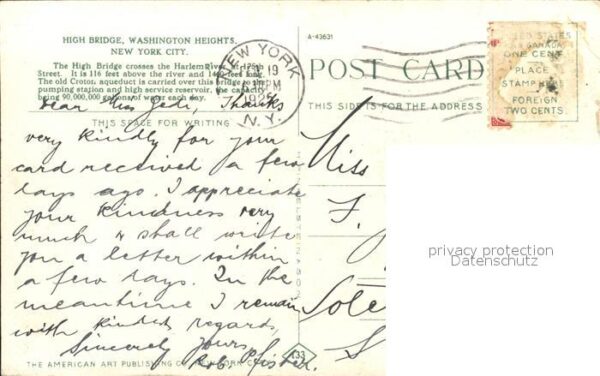 HIGH BRIDGE, WASHINGTON HEIGHTS,
NEW YORK CITY.
The High Bridge crosses the Harlem River at 175th
Street. It is 116 feet above the river and feet long.
The old Croton aqueduct is carried over this bridge to the
pumping station and high service reservoir. The capacity
being 90,000,000 gallons of water each day.
Dear Miss Thanks
THIS SPACE FOR WRITING
very kindly for your
card received a few
days ago. I appreciate
your kindness very
much & shall write
you a letter within
a few days. In the
meantime I remain
with kindest regards,
Sincerely yours,
Rob. Pfister.
THE AMERICAN ART PUBLISHING CO. NEW YORK CITY
133
A-43631
NEW YORK
19
PM
N.Y.
POST CARD
THIS SIDE IS FOR THE ADDRESS
UNITED STATES
AND CANADA
ONE CENT
PLACE
STAMP HERE
FOREIGN
TWO CENTS.
Miss
F.
privacy protection
Datenschutz